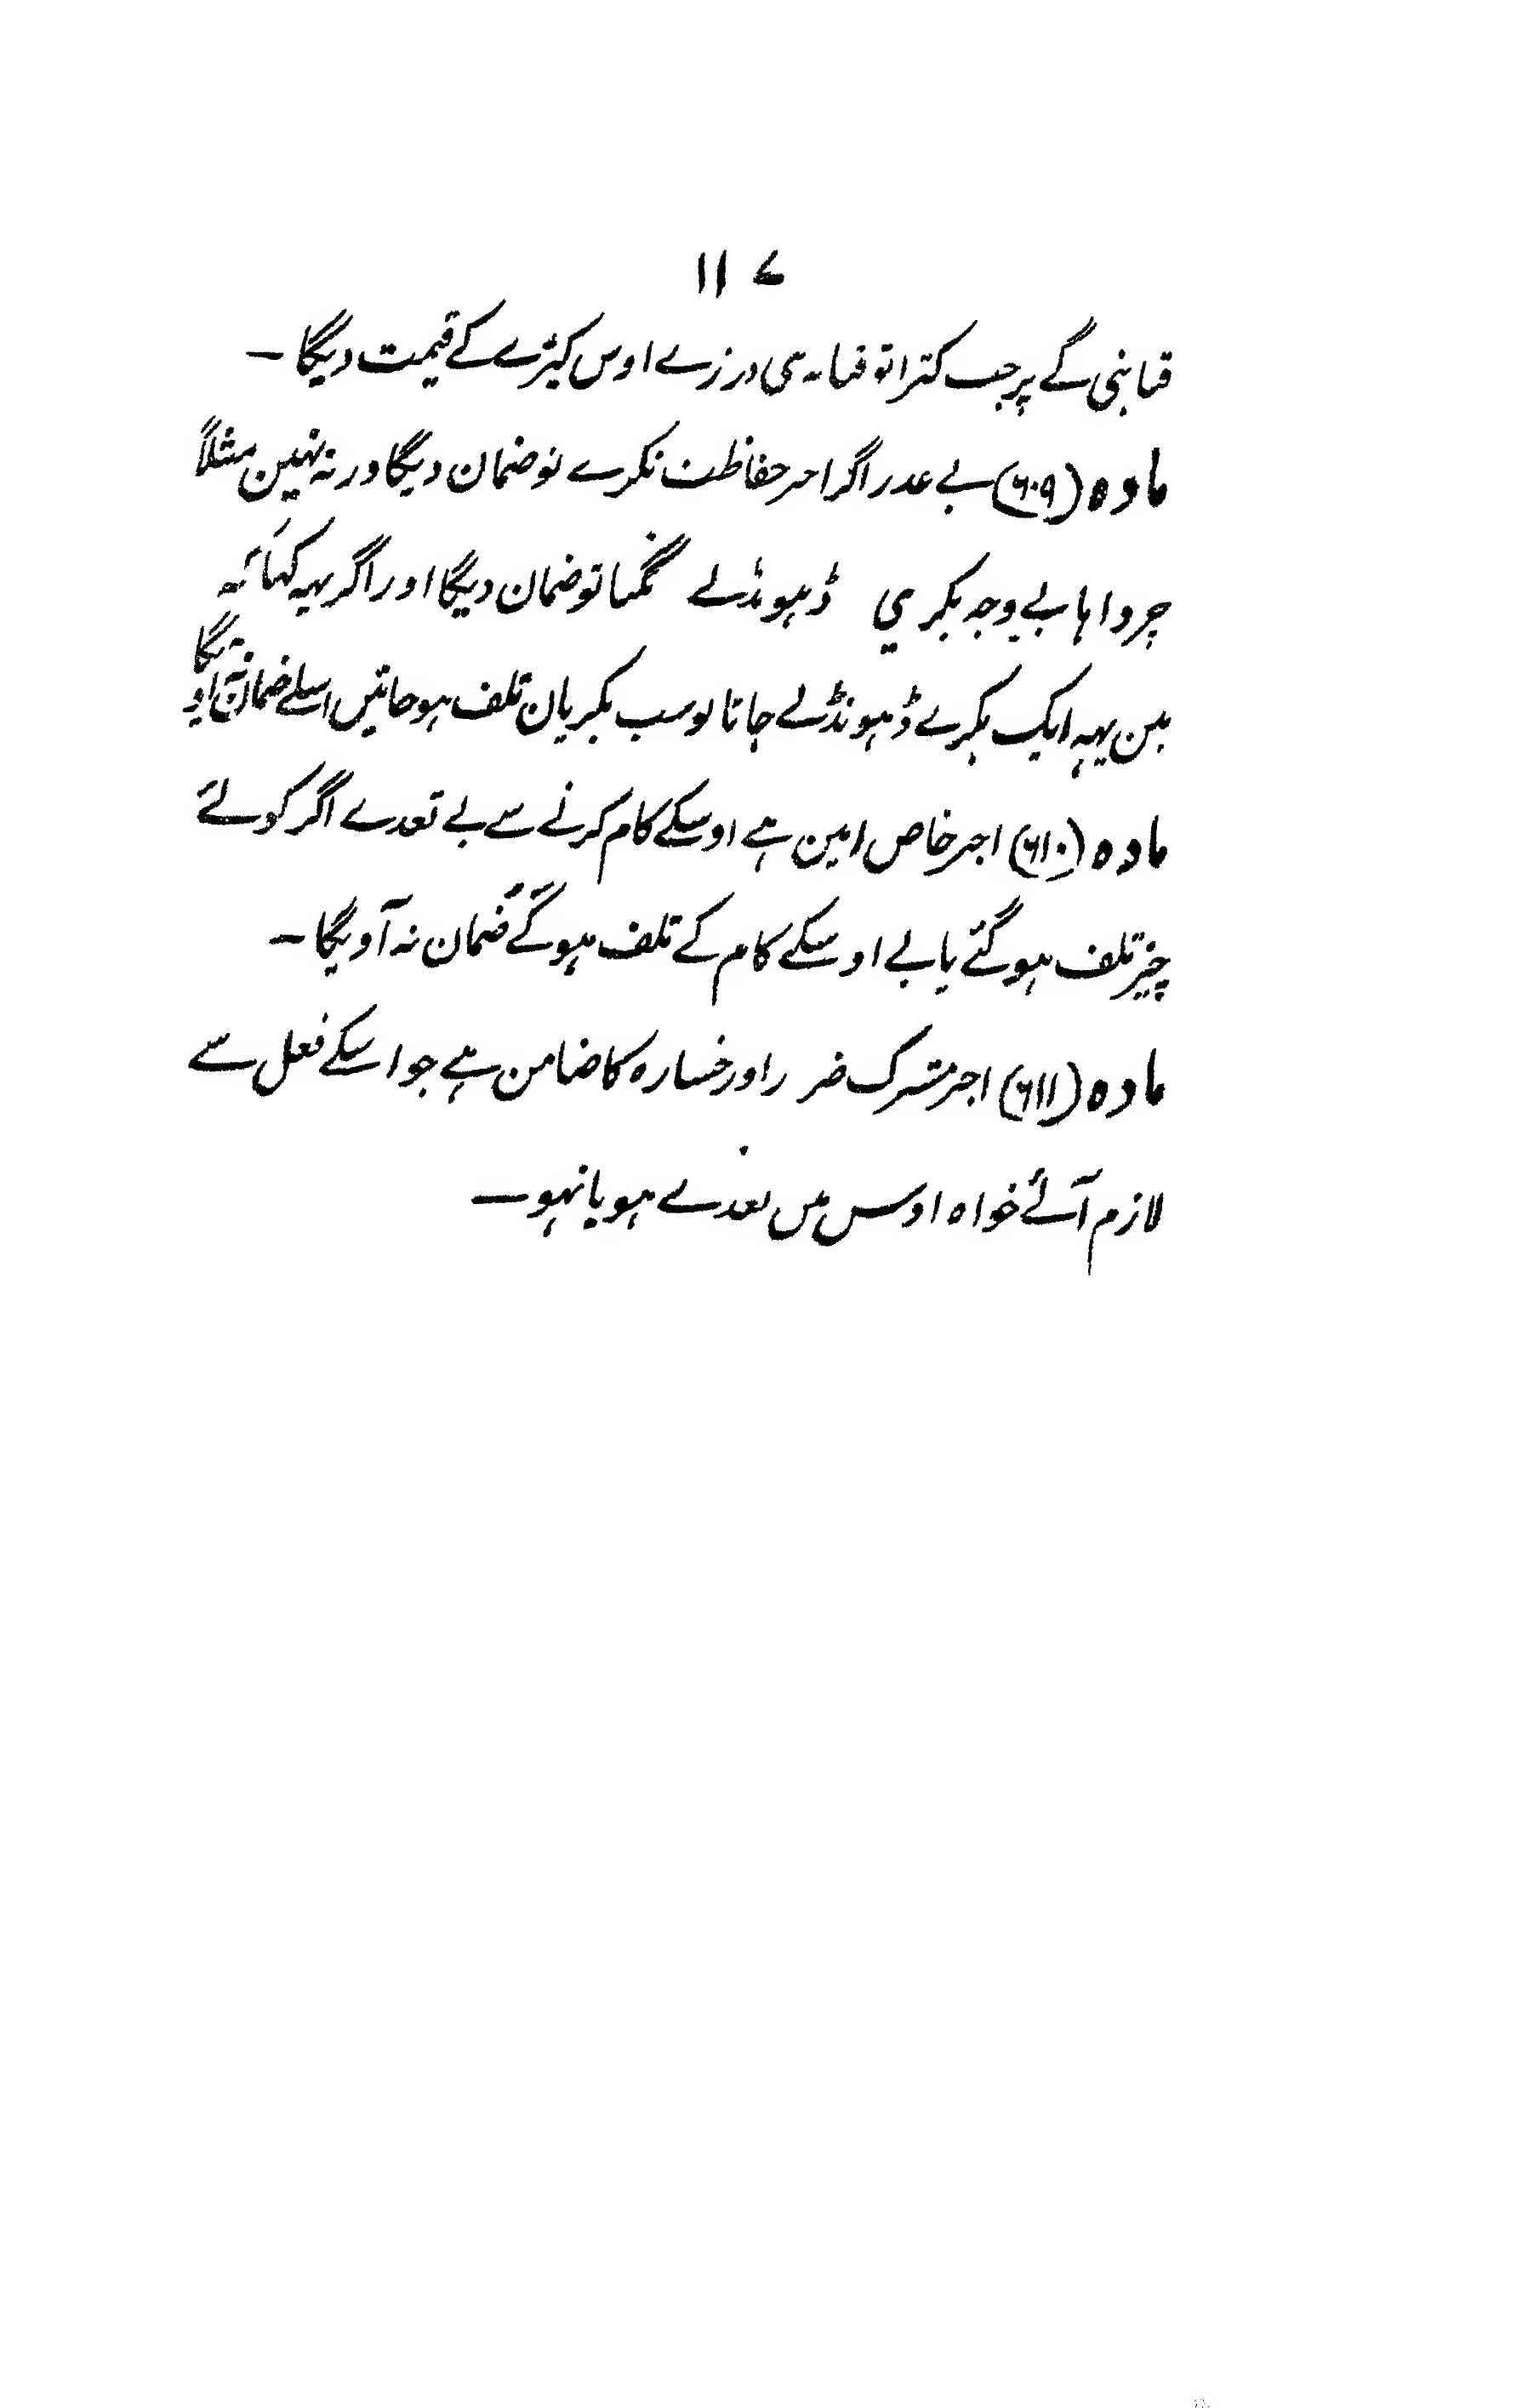 ۱۱۷
قبا بنی گے پر جب کترا تو قبا نہ بنی درزے اوس کپڑے کے قیمت دیگا ۔
مادہ (۶۰۹) بے عذر اگر اجیر حفاظت نکرے تو ضمان دیگا ورنہ نہین مثلاً
چرواہا بے وجہ بکری ڈہونڈے نگیا تو ضمان دیگا اور اگر یہہ کہا کہ
مین یہہ ایک بکرے ڈہونڈے جاتا تو سب بکریان تلف ہو جاتیں اسلے ضمان نہ آویگا
مادہ (۶۱۰) اجیر خاص امین ہے اوسکے کام کرنے سے بے تعدے اگر کوئے
چیز تلف ہو گئے یا بے اوسکے کام کے تلف ہو گئے ضمان نہ آویگا ۔
مادہ (۶۱۱) اجیر مشترک ضرر اور خسارہ کا ضامن ہے جو اسکے فعل سے
لازم آئے خواہ اوس میں تعدے ہو یا نہو ۔